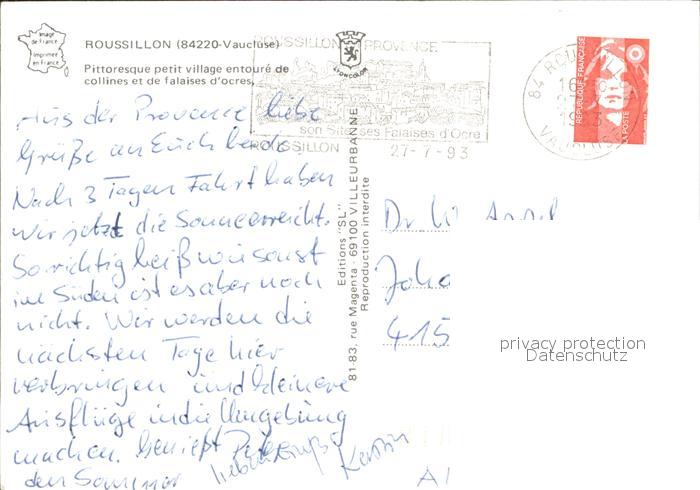 Image
de France
Imprimée
en France
ROUSSILLON (84220-Vaucluse)
Pittoresque petit village entouré de
collines et de falaises d'ocres.
LYONCOLOR
ROUSSILLON PROVENCE
son Site ses Falaises d'Ocre
ROUSSILLON 27-7-93
84 ROUSSILLON
VAUCLUSE
REPUBLIQUE FRANÇAISE
LA POSTE
Aus der Provence liebe
Grüße an Euch beide.
Nach 3 Tagen Fahrt haben
wir jetzt die Sonne erreicht.
So richtig heiß wie sonst
im Süden ist es aber noch
nicht. Wir werden die
nächsten Tage hier
verbringen und kleinere
Ausflüge in die Umgebung
machen. Genießt
den Sommer
Kerstin
Editions "SL"
81-83, rue Magenta - 69100 VILLEURBANNE
Reproduction interdite
Dr
Joha
415
privacy protection
Datenschutz